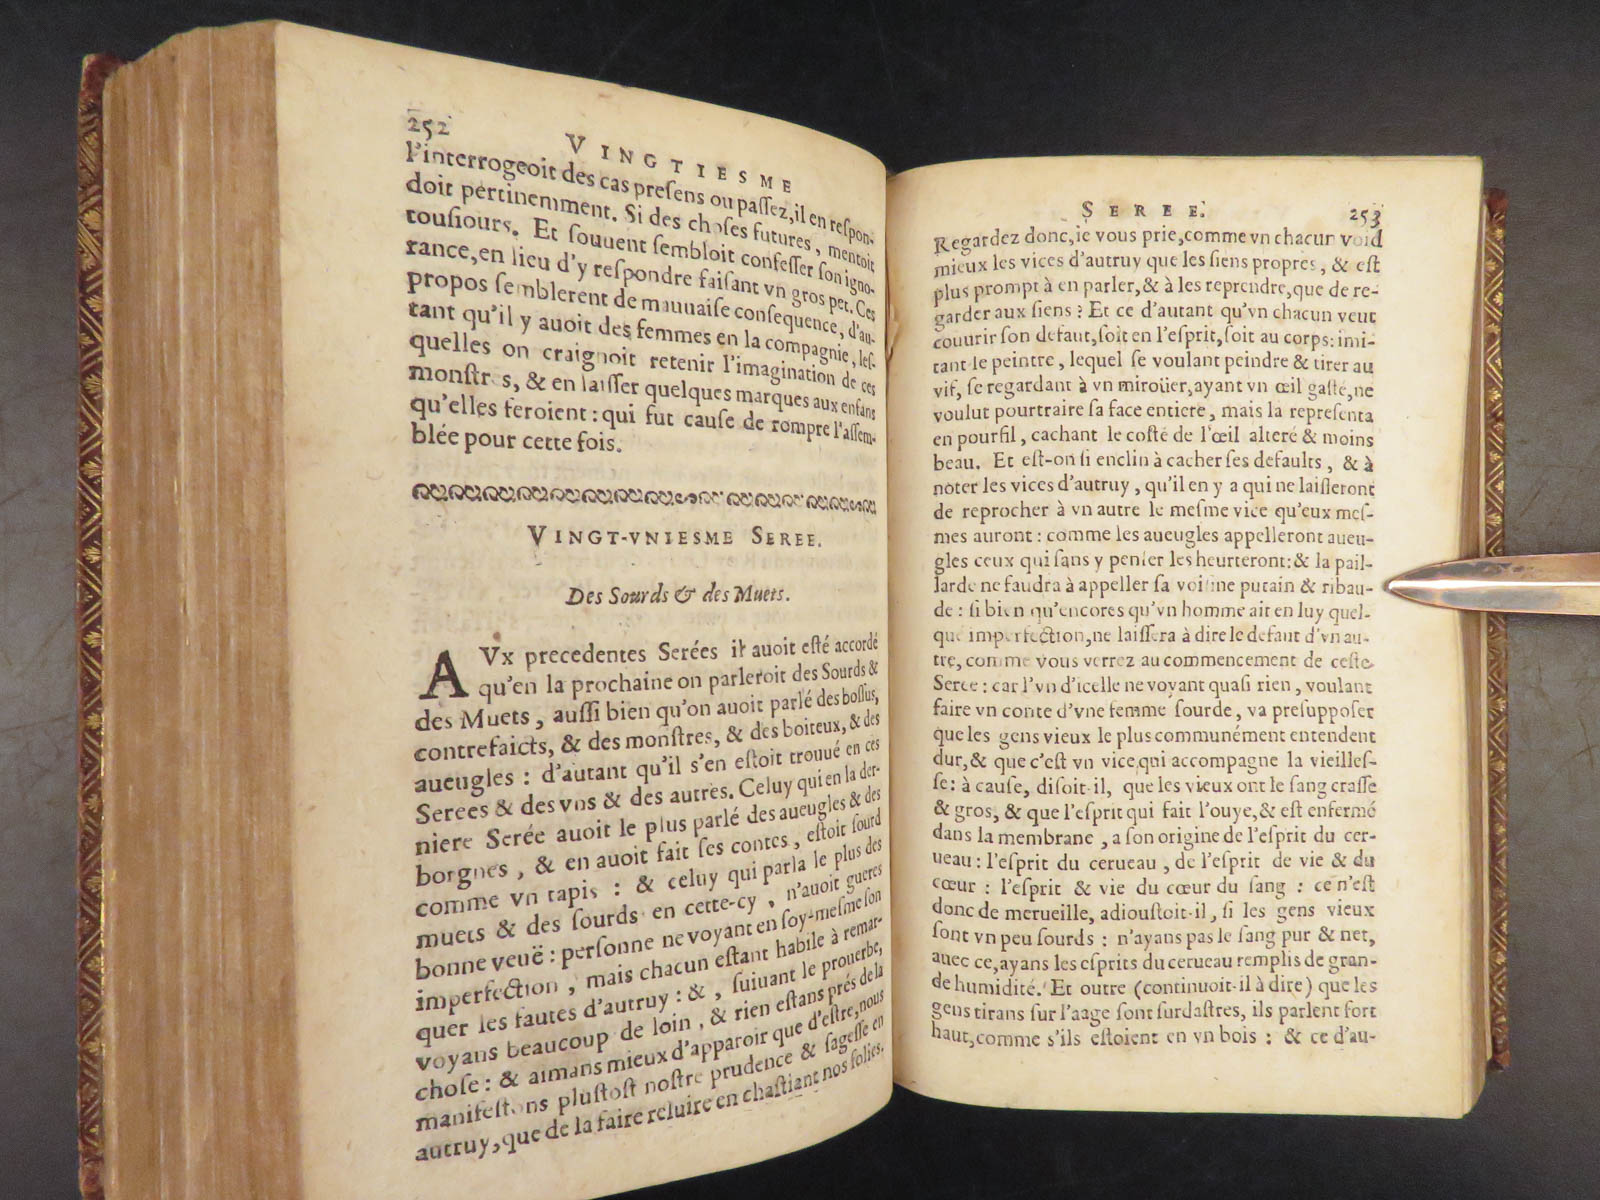 252 VINGTIESME
l'interrogeoit des cas preſens ou paſſez, il en reſpon-
doit pertinemment. Si des choſes futures, mentoit
touſiours. Et ſouuent ſembloit confeſſer ſon igno-
rance, en lieu d'y reſpondre faiſant vn gros pet. Ces
propos ſemblerent de mauuaiſe conſequence, d'au-
tant qu'il y auoit des femmes en la compagnie, leſ-
quelles on craignoit retenir l'imagination de ces
monſtres, & en laiſſer quelques marques aux enfans
qu'elles feroient : qui fut cauſe de rompre l'aſſem-
blée pour cette fois.
VINGT-VNIESME SEREE.
Des Sourds & des Muets.
AVx precedentes Serées il auoit eſté accordé
qu'en la prochaine on parleroit des Sourds &
des Muets, auſſi bien qu'on auoit parlé des boſſus,
contrefaicts, & des monſtres, & des boiteux, & des
aueugles : d'autant qu'il s'en eſtoit trouué en ces
Serees & des vns & des autres. Celuy qui en la der-
niere Serée auoit le plus parlé des aueugles & des
borgnes, & en auoit fait ſes contes, eſtoit ſourd
comme vn tapis : & celuy qui parla le plus des
muets & des ſourds en cette-cy, n'auoit gueres
bonne veuë : perſonne ne voyant en ſoy-meſme ſon
imperfection, mais chacun eſtant habile à remar-
quer les fautes d'autruy : &, ſuiuant le prouerbe,
voyans beaucoup de loin, & rien eſtans prés de la
choſe : & aimans mieux d'apparoir que d'eſtre, nous
manifeſtons pluſtoſt noſtre prudence & ſageſſe en
autruy, que de la faire reluire en chaſtiant nos folies.
SEREE. 253
Regardez donc, ie vous prie, comme vn chacun void
mieux les vices d'autruy que les ſiens propres, & eſt
plus prompt à en parler, & à les reprendre, que de re-
garder aux ſiens ? Et ce d'autant qu'vn chacun veut
couurir ſon defaut, ſoit en l'eſprit, ſoit au corps: imi-
tant le peintre, lequel ſe voulant peindre & tirer au
vif, ſe regardant à vn miroüer, ayant vn œil gaſté, ne
voulut pourtraire ſa face entiere, mais la repreſenta
en pourfil, cachant le coſté de l'œil alteré & moins
beau. Et eſt-on ſi enclin à cacher ſes defaults, & à
noter les vices d'autruy, qu'il en y a qui ne laiſſeront
de reprocher à vn autre le meſme vice qu'eux meſ-
mes auront : comme les aueugles appelleront aueu-
gles ceux qui ſans y penſer les heurteront: & la pail-
larde ne faudra à appeller ſa voiſine putain & ribau-
de : ſi bien qu'encores qu'vn homme ait en luy quel-
que imperfection, ne laiſſera à dire le defaut d'vn au-
tre, comme vous verrez au commencement de ceſte
Seree : car l'vn d'icelle ne voyant quaſi rien, voulant
faire vn conte d'vne femme ſourde, va preſuppoſer
que les gens vieux le plus communément entendent
dur, & que c'eſt vn vice, qui accompagne la vieilleſ-
ſe: à cauſe, diſoit-il, que les vieux ont le ſang craſſe
& gros, & que l'eſprit qui fait l'ouye, & eſt enfermé
dans la membrane, a ſon origine de l'eſprit du cer-
ueau : l'eſprit du cerueau, de l'eſprit de vie & du
cœur : l'eſprit & vie du cœur du ſang : ce n'eſt
donc de merueille, adiouſtoit-il, ſi les gens vieux
ſont vn peu ſourds : n'ayans pas le ſang pur & net,
auec ce, ayans les eſprits du cerueau remplis de gran-
de humidité. Et outre (continuoit-il à dire) que les
gens tirans ſur l'aage ſont ſurdaſtres, ils parlent fort
haut, comme s'ils eſtoient en vn bois : & ce d'au-